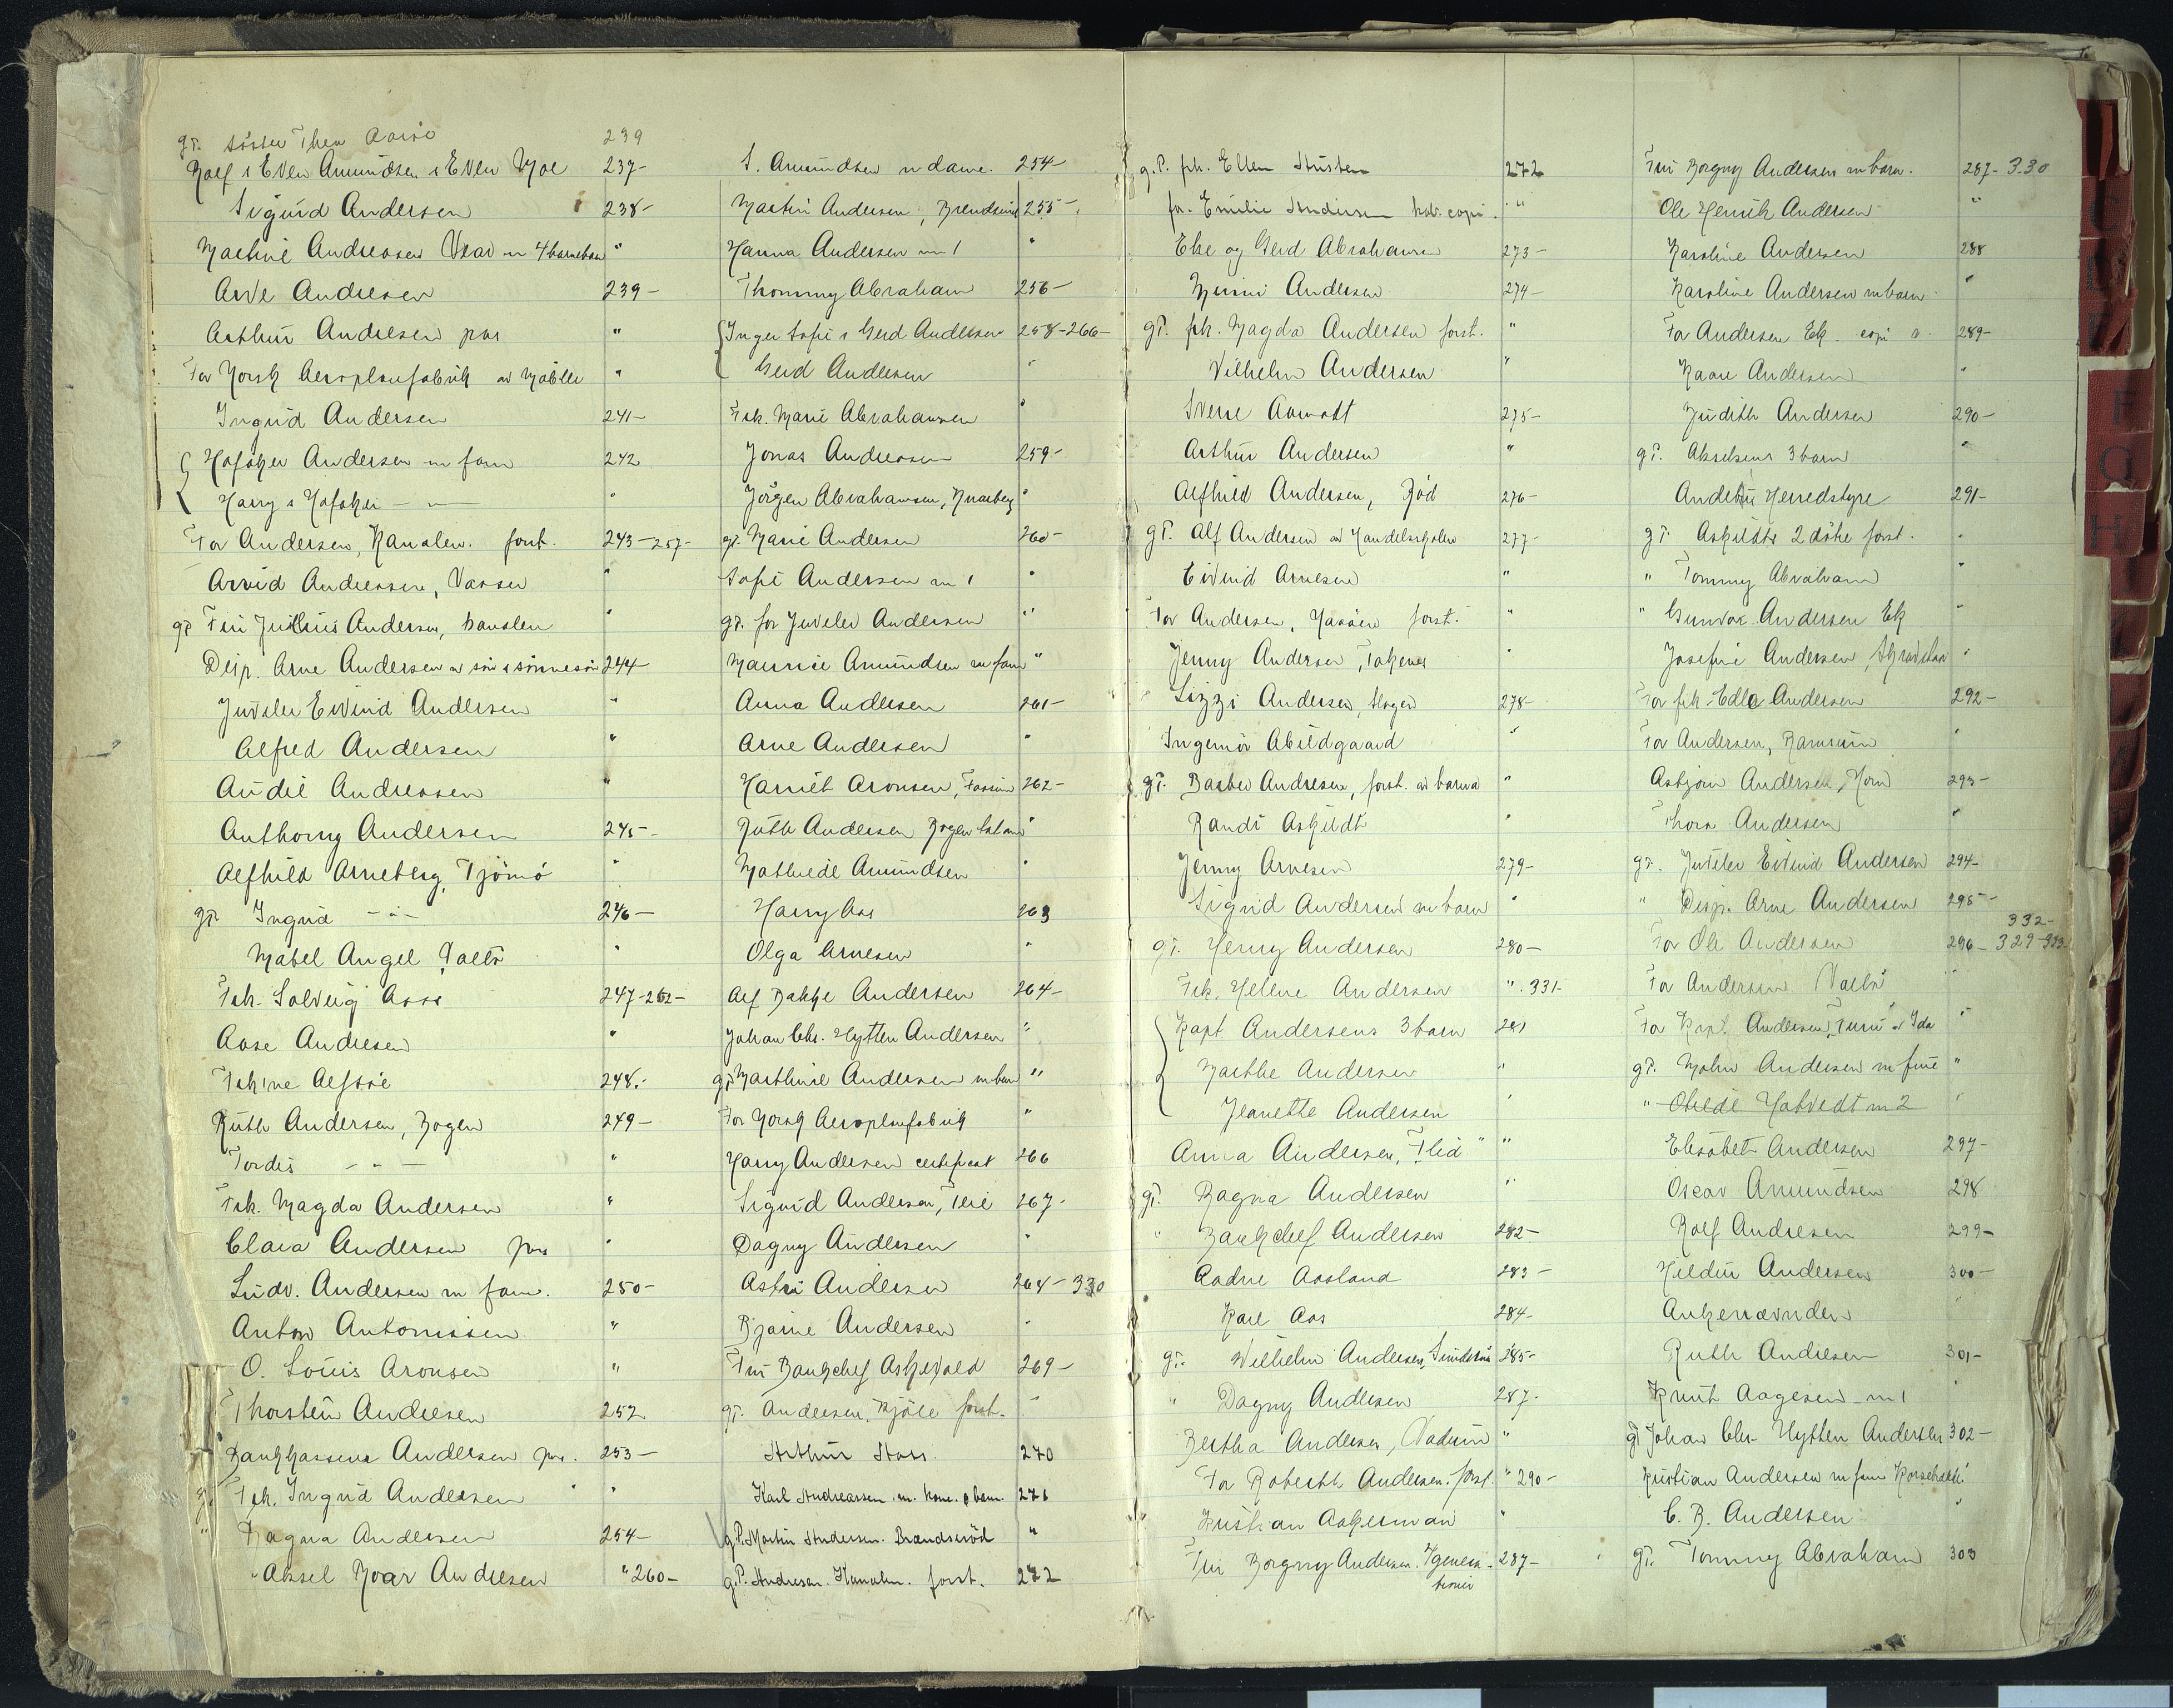 gt. söster Thea Aarö 239
Rolf & Even Amundsen & Even Moe 237-
Sigurd Andersen 238-
Mathine Andreasen Vear m 4 barnebarn "
Arve Andresen 239-
Arthur Andresen pas "
For Norsk Aeroplanfabrik av Møbler "
Ingrid Andersen 241-
Hafsker Andersen m fam 242
Harry & Hafsker - " -
For Andersen, Kanalen. forst. 243-257-
Arvid Andreassen, Vasser "
gt Fru Julius Andersen, kanalen "
Disp. Arne Andersen m sön & sönnesön 244-
Juveler Eivind Andersen "
Alfred Andersen "
Audie Andreasen "
Anthony Andersen 245-
Alfhild Arneberg, Tjömö "
gt. Ingrid - " - 246-
Mabel Angel "
Frk. Solveig Aass 247-262-
Aase Andresen "
248-
Ruth Andersen, Bogen 249-
Tordis - " - "
Frk. Magda Andersen "
Clara Andersen pas "
Ludv. Andersen m fam. 250-
Anton Antonissen "
O. Louis Aronsen "
Thorstein Andresen 252
Bankkasserer Andersen pas. 253-
gt. Frk. Ingrid Andersen "
" Ragna Andersen 254-
" Aksel Roar Andresen " 260-
S. Amundsen m dame. 254-
Martin Andersen, 255-
Hanna Andersen m 1 "
Thommy Abraham 256-
Inger Sofie & Gerd Andersen 258-266-
Gerd Andersen "
Frk. Marie Abrahamsen "
Jonas Andreasen 259-
Jörgen Abrahamsen, Knarberg "
gt. Marie Andersen 260-
Sofie Andersen m 1 "
gt. for Juveler Andersen "
Amundsen m fam "
Anna Andersen 261-
Arne Andersen "
Harriet Aronsen, 262-
Ruth Andersen Bogen "
Mathilde Amundsen "
Harry Aas 263
Olga Arnesen "
Alf Bakke Andersen 264-
Johan Chr. Hytten Andersen "
gt Marthine Andersen m barn "
For Norsk Aeroplanfabrik "
Harry Andersen certificat 266
Sigurd Andersen, Teie 267-
Dagny Andersen "
Astri Andersen 268-330
Bjarne Andersen "
Fru Bankchef Askevold 269-
gt. Andersen, forst. "
Arthur Aass 270
Karl Andreassen m. kone. & barn. 271
g.T. Martin Andersen. Brændsröd "
g.T. Andresen. Kanalen. forst. 272
g.T. frk. Ellen Austen 272
for. Emilie Andersen kab. copi. "
Else og Gerd Abrahamsen 273-
Andersen 274-
gt. frk. Magda Andersen forst. "
Vilhelm Andersen "
Sverre Aamodt 275-
Arthur Andersen "
Alfhild Andersen, Röd 276-
gt. Alf Andersen av Handelsskolen 277-
Eivind Arnesen "
For Andersen, forst. "
Jenny Andersen, "
Lizzi Andersen, Hagen 278-
Ingemör Abildgaard "
gt. Andresen, forst. av barna "
Randi Askildt "
Jenny Arnesen 279-
Sigrid Andersen m barn "
gt. Henry Andersen 280-
Frk. Helene Andersen " 331-
Kapt. Andersens 3 barn 281
Marthe Andersen "
Jeanette Andersen "
Anna Andersen, "
gt. Ragna Andersen "
" Bankchef Andersen 282-
Aadne Aasland 283-
Kare Aas 284-
gt. Wilhelm Andersen, 285-
" Dagny Andersen 287-
Bertha Andersen, "
For Andersen. forst. " 290-
Kristian Ackerman "
Fru Borgny Andersen. 4 genera- 287-
tioner
Fru Borgny Andersen m barn. 287-330
Ole Henrik Andersen "
Karoline Andersen 288
Karoline Andersen m barn "
For Andersen Ek. copi 289-
Kaare Andersen "
Judith Andersen 290-
gt. Akselsens 3 barn "
Andebu Herredstyre 291-
gt. Askildts 2 dötre forst. "
" Tommy Abraham "
" Gunvor Andersen Ek "
Josefine Andersen, "
For frk. Edle Andersen 292-
For Andersen, Ramsum "
Asbjörn Andersen, 293-
Thora Andersen "
gt. Juveler Eivind Andersen 294-
" Disp. Arne Andersen 295-
332-
For Ole Andersen 296-329-333-
For Andersen "
For Kapt. Andersen, "
gt. Andersen m frue "
" Hatvedt m 2 "
Elisabeth Andersen 297-
Oscar Amundsen 298
Rolf Andresen 299-
Andersen 300-
Ankenævnden "
Ruth Andresen 301-
Knut Aagesen m 1 "
gt Johan Chr. Hytten Andersen 302-
Kristian Andersen m fam "
C. B. Andersen "
gt. Tommy Abraham 303
E
G
H